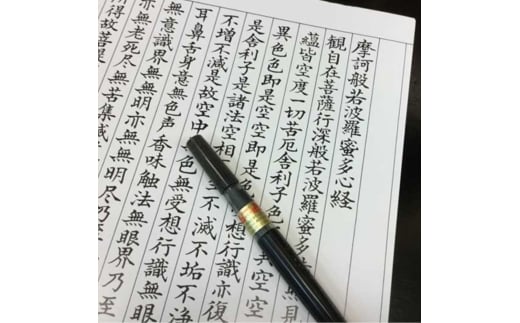 摩訶般若波羅蜜多心経
観自在菩薩行深般若波羅蜜多照見
蘊皆空度一切苦厄舎利子色異空
異色色即是空空即是色想行識亦復
是舎利子是諸法空相不滅不垢不浄
不増不減是故空中色無受想行識無
耳鼻舌身意無色声香味触法無眼界乃至
無意識界無無明亦無無明尽乃至
亦無老死尽無苦集滅
所得故菩提